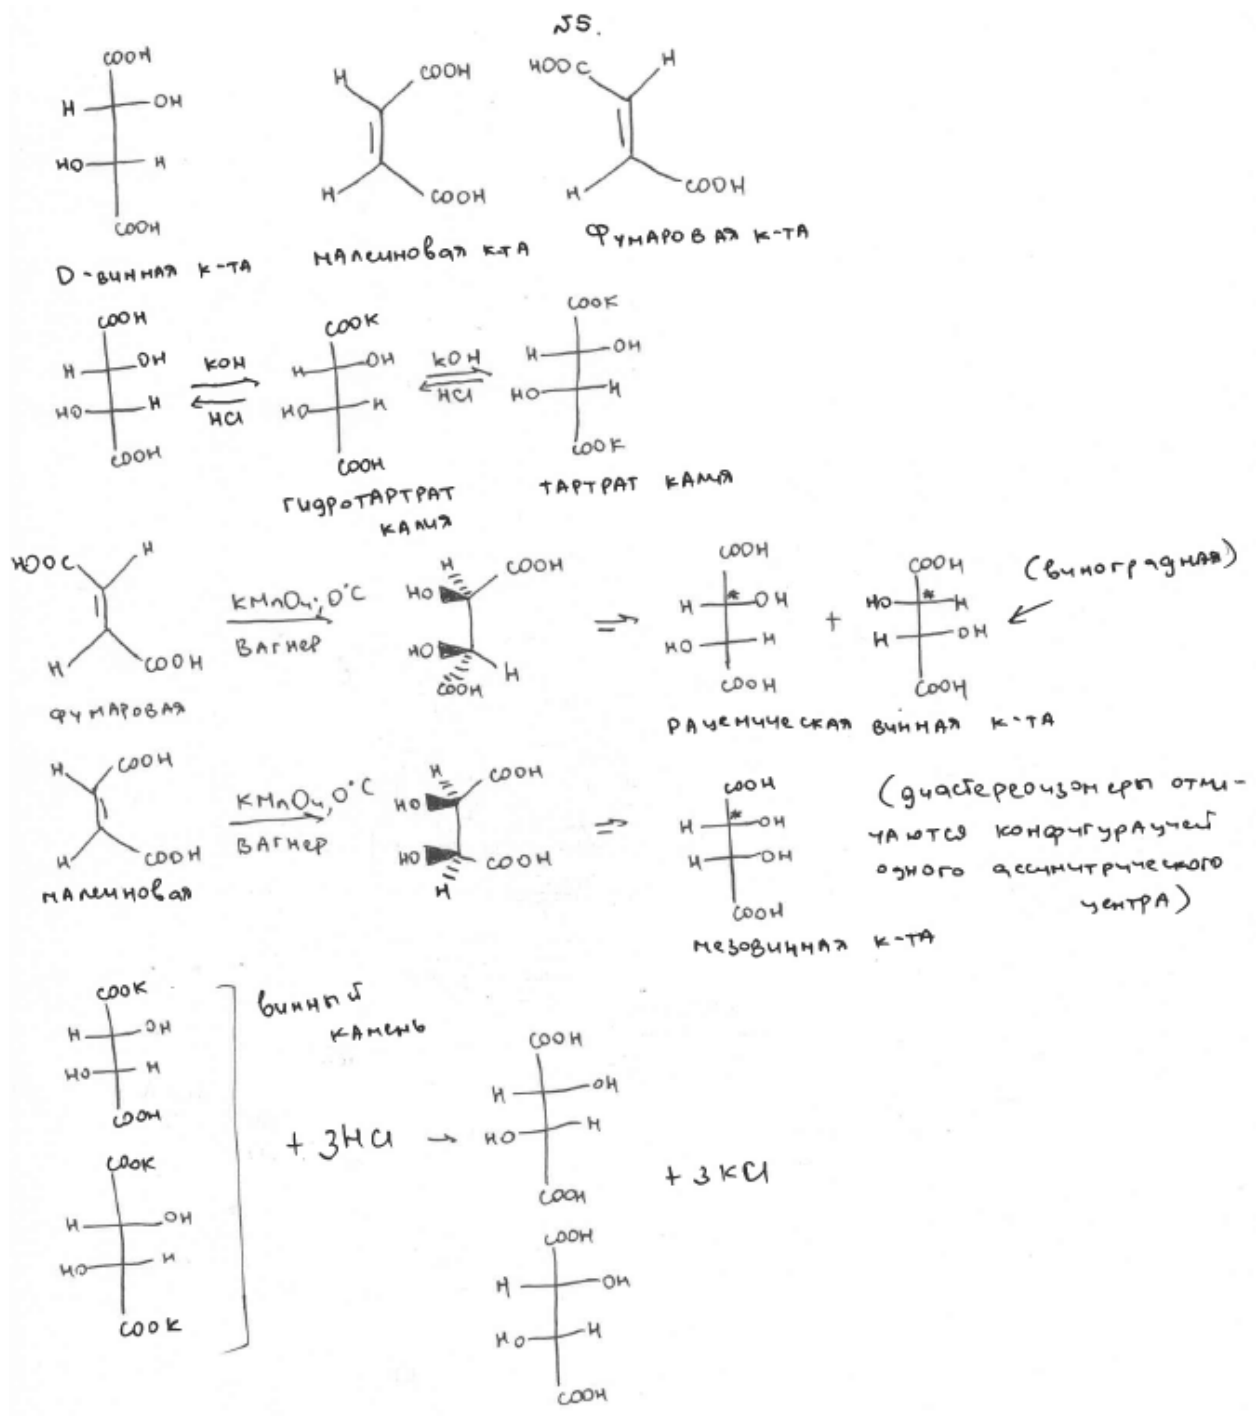 №5.
COOH
H OH
HO H
COOH
D-винная к-та
H COOH
H COOH
малеиновая к-та
HOOC H
H COOH
Фумаровая к-та
COOH
H OH
HO H
COOH
KOH
HCl
COOK
H OH
HO H
COOH
гидротартрат
калия
KOH
HCl
COOK
H OH
HO H
COOK
тартрат калия
HOOC H
H COOH
фумаровая
KMnO4, 0°C
Вагнер
H COOH
HO
HO H
COOH
⇒
COOH
H * OH
HO H
COOH
+
COOH
HO * H
H OH
COOH
(виноградная)
рацемическая винная к-та
H COOH
H COOH
малеиновая
KMnO4, 0°C
Вагнер
H COOH
HO
HO COOH
H
⇒
COOH
H * OH
H OH
COOH
мезовинная к-та
(диастереоизомеры отли-
чаются конфигурацией
одного ассимитрического
центра)
COOK
H OH
HO H
COOH
COOK
H OH
HO H
COOK
винный
камень
+ 3HCl →
COOH
H OH
HO H
COOH
COOH
H OH
HO H
COOH
+ 3KCl